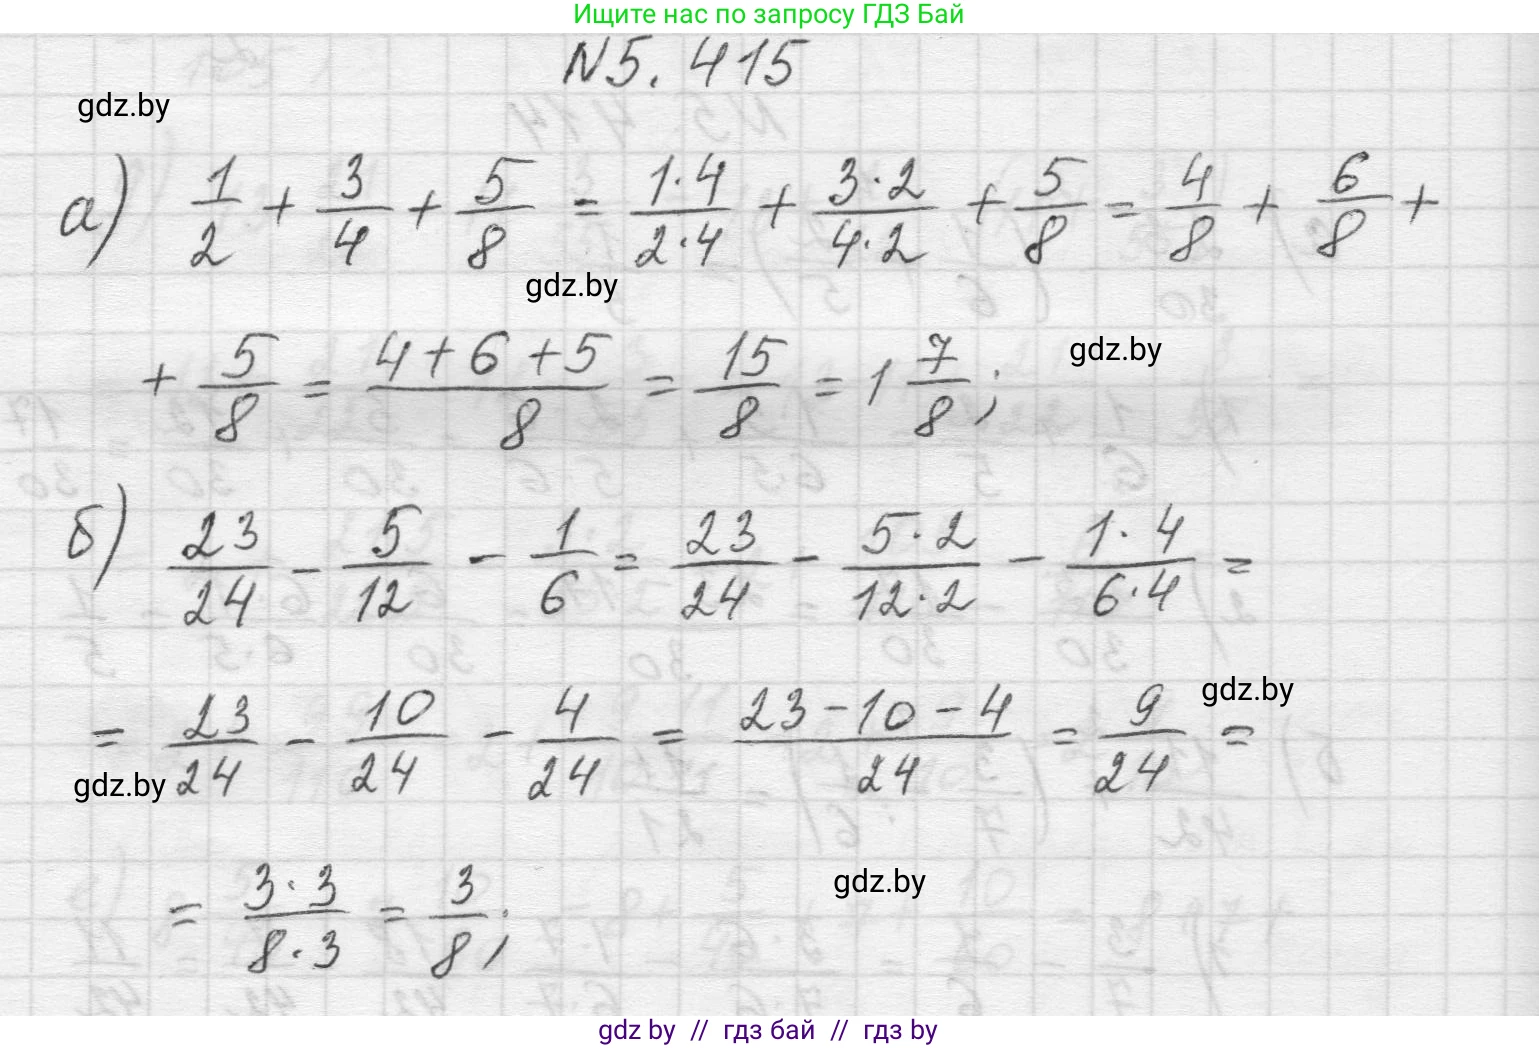 Ищите нас по запросу ГДЗ Бай
N5.415
gdz.by
а) 1/2 + 3/4 + 5/8 = 1·4/2·4 + 3·2/4·2 + 5/8 = 4/8 + 6/8 +
gdz.by
+ 5/8 = 4+6+5/8 = 15/8 = 1 7/8;
gdz.by
б) 23/24 - 5/12 - 1/6 = 23/24 - 5·2/12·2 - 1·4/6·4 =
gdz.by
= 23/24 - 10/24 - 4/24 = 23-10-4/24 = 9/24 =
gdz.by
= 3·3/8·3 = 3/8;
gdz.by
gdz by // гдз бай // гдз by